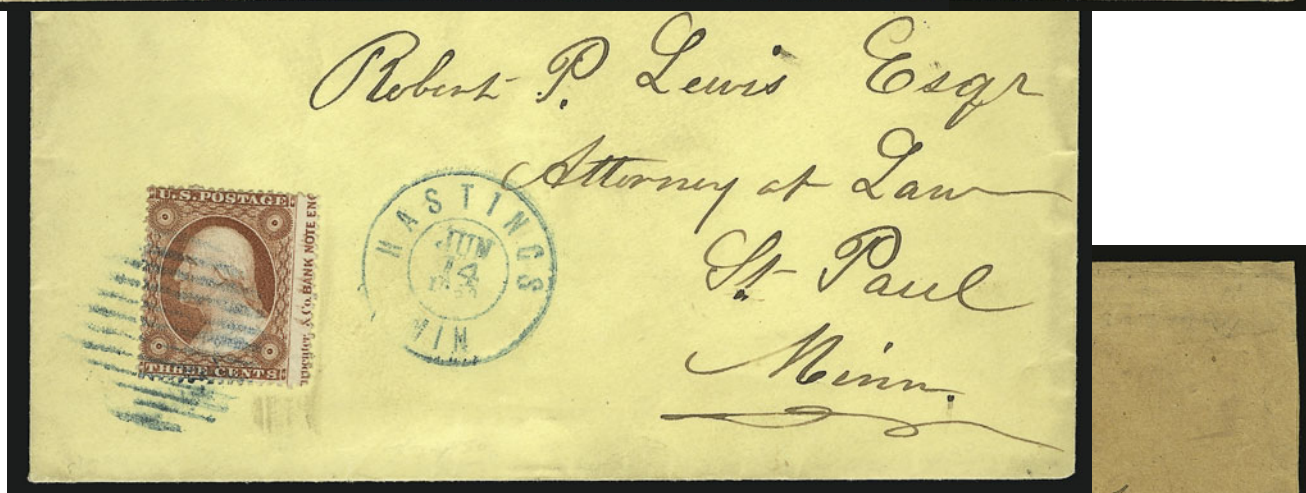 Robert P. Lewis Esqr
Attorney at Law
St. Paul
Minn.
U.S. POSTAGE
THREE CENTS
& Co. BANK NOTE ENG
HASTINGS
JUN
14
MIN